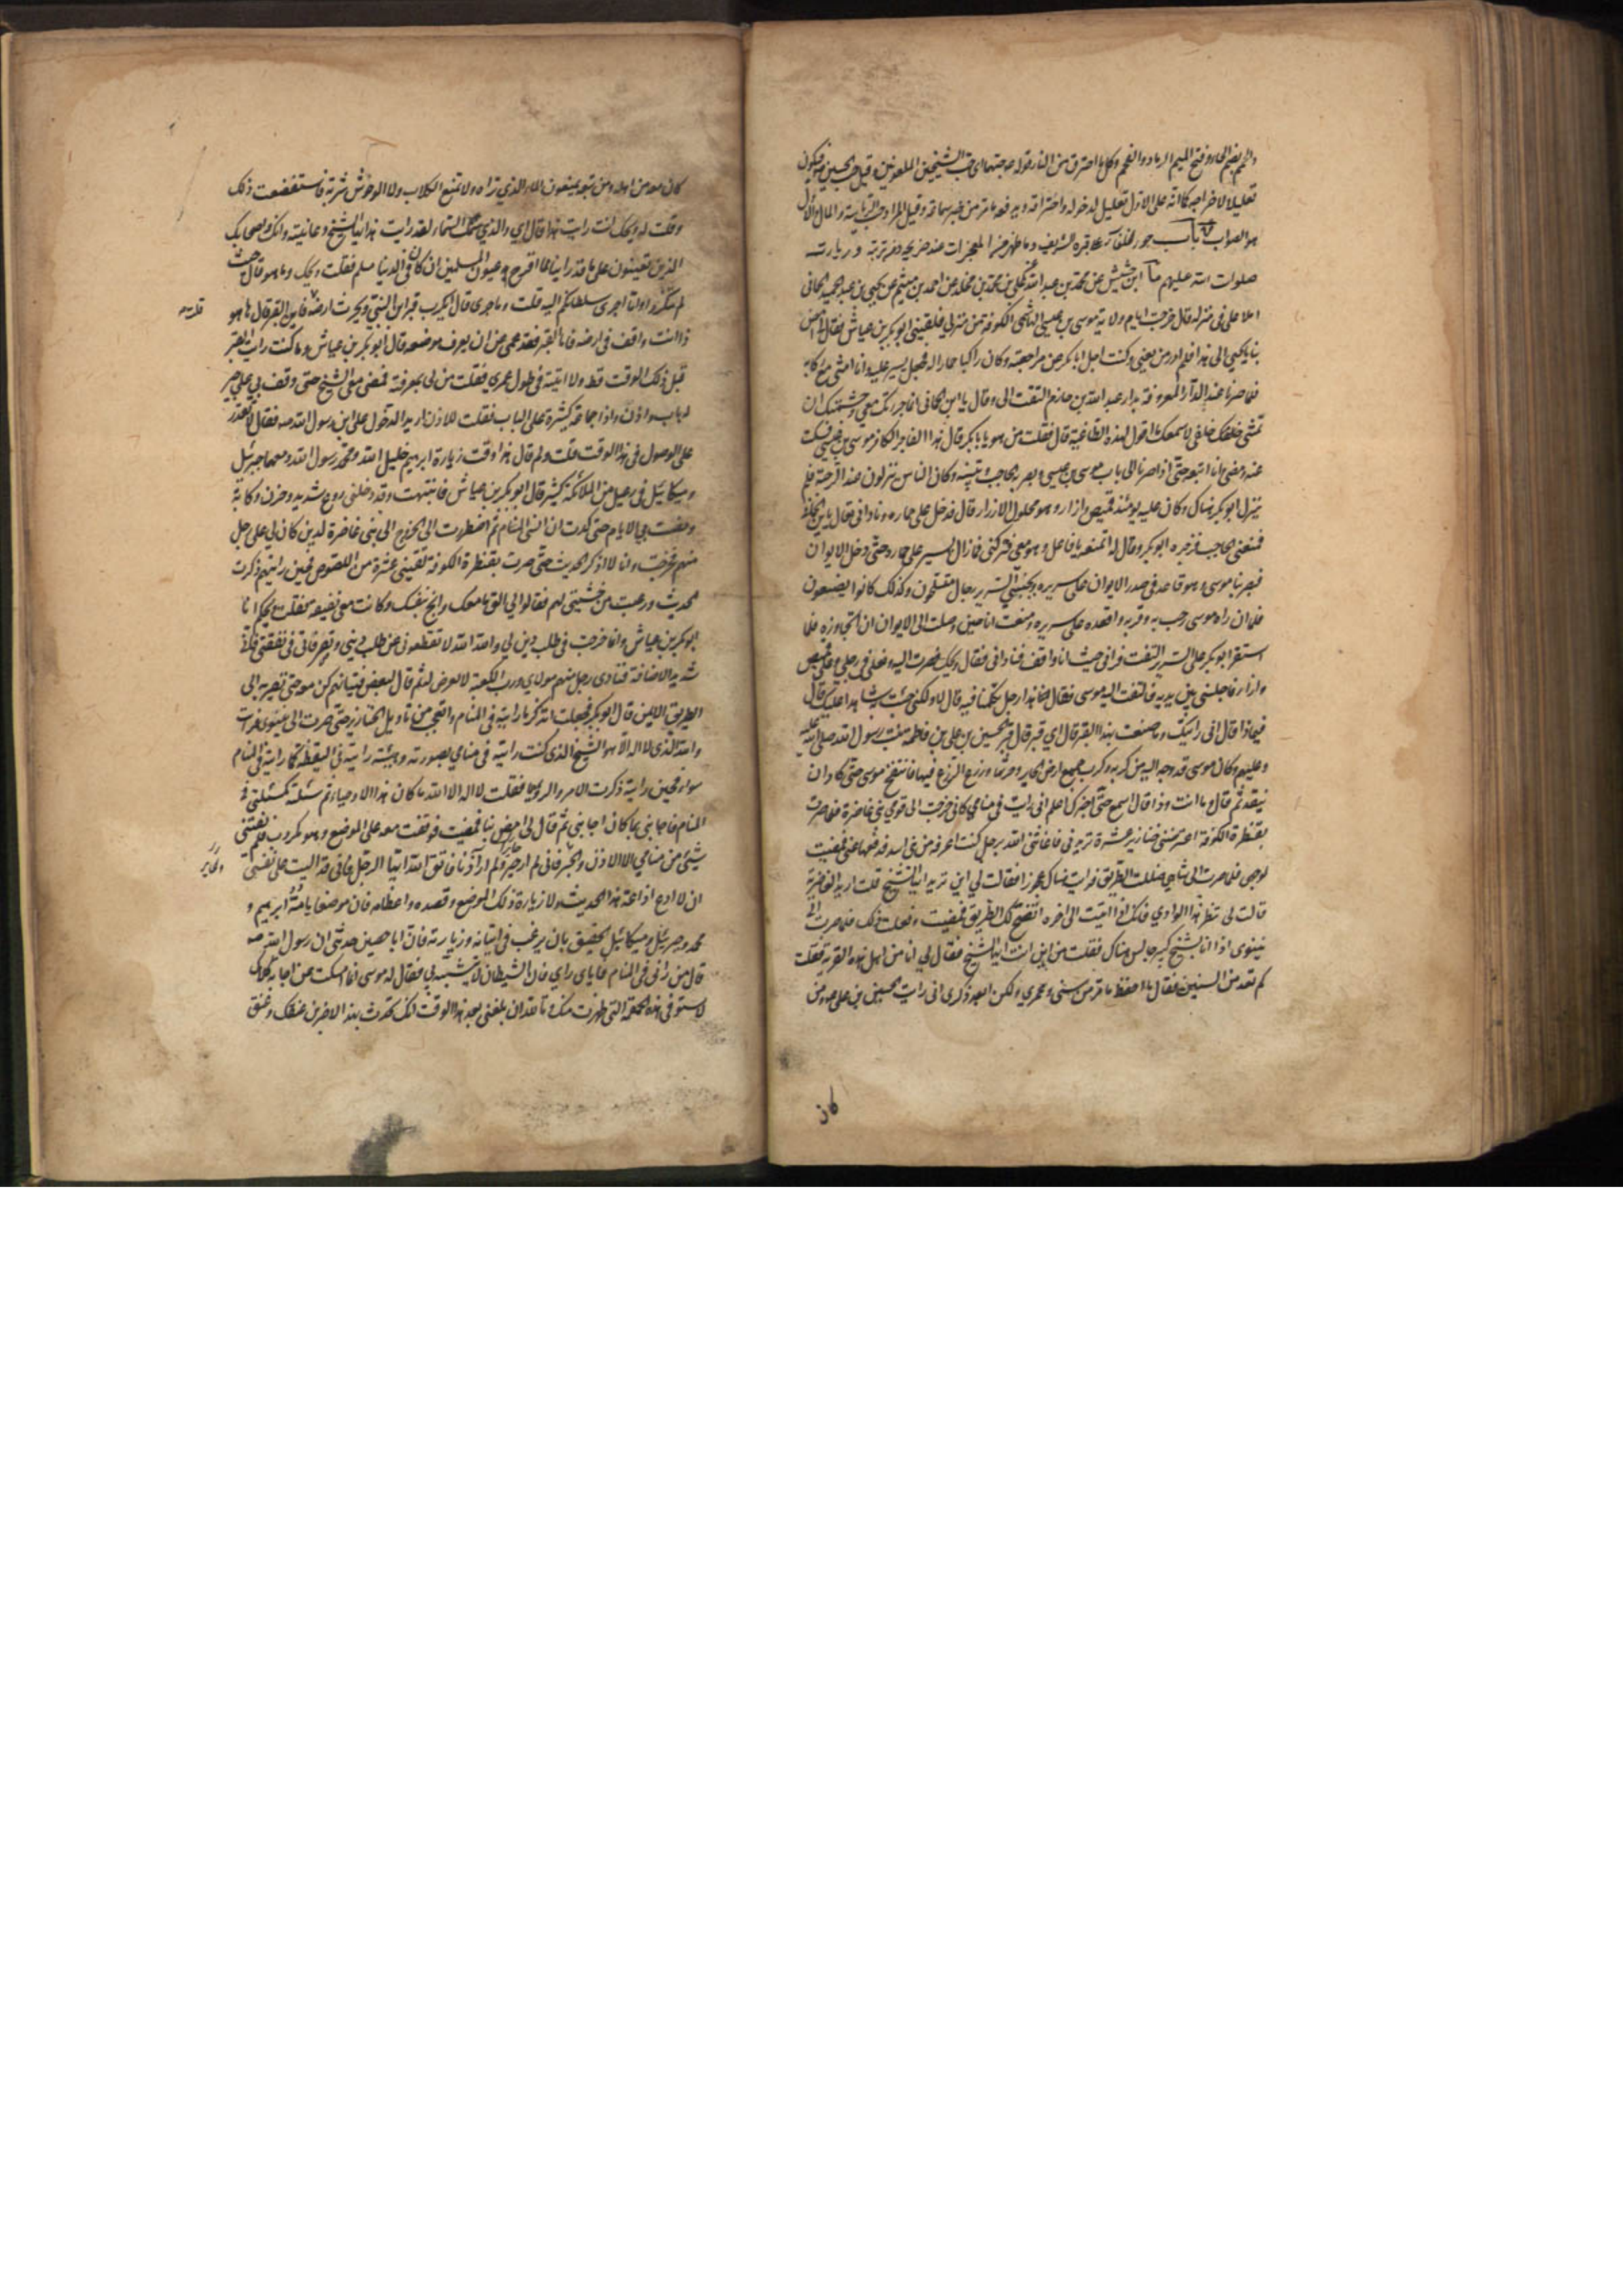 والحمم بضم الحاء وفتح الميم الرماد والفحم وكل ما احترق من النار قوله صحبتهما اي حب الشيخين الملعونين وقيل حب الحسين فيكون
تعليلا لاخراجه كما انه على الاول تعليل لدخوله واحتراقه
هو الصواب باب جور الخلفاء على قبره الشريف وما ظهر من المعجزات عند ضريحه ومن تربته وزيارته
صلوات الله عليهم ما ابن خشيش عن محمد بن عبد الله عن علي بن محمد بن مخلد عن احمد بن ميثم عن يحيى بن عبد الحميد الحماني
املا علي في منزله قال خرجت ايام ولاية موسى بن عيسى الهاشمي الكوفة من منزلي فلقيني ابو بكر بن عياش فقال لي امض
بنا يا يحيى الى هذا فلم ادر من يعني وكنت اجل ابا بكر عن مراجعته وكان راكبا حمارا له فجعل يسير عليه وانا امشي مع ركابه
فلما صرنا عند الدار المعروفة بدار عبد الله بن حازم التفت الي وقال يا ابن الحماني انما جررتك معي وجشمتك ان
تمشي خلفك خلفي لاسمعك ما اقول لهذه الطاغية قال فقلت من هو يا با بكر قال هذا الفاجر الكافر موسى بن عيسى فسكت
عنه ومضى وانا اتبعه حتى اذا صرنا الى باب موسى بن عيسى وبصر به الحاجب وتبينه وكان الناس ينزلون عند الرحبة فلم
ينزل ابو بكر هناك وكان عليه يومئذ قميص وازار وهو محلول الازرار قال فدخل على حماره وناداني فقال يا ابن الحماني
فمنعني الحاجب فزجره ابو بكر وقال له اتمنعه يا فاعل وهو معي فتركني فما زال يسير على حماره حتى دخل الايوان
فبصر بنا موسى وهو قاعد في صدر الايوان على سريره وبجنبتي السرير رجال متسلحون وكذلك كانوا يصنعون
فلما ان راه موسى رحب به وقربه واقعده على سريره ومنعت انا حين وصلت الى الايوان ان اتجاوزه فلما
استقر ابو بكر على السرير التفت فراني حيث انا واقف فناداني فقال ويحك فصرت اليه ونعلي في رجلي وعلي قميص
وازار فاجلسني بين يديه فالتفت اليه موسى فقال هذا رجل تكلمنا فيه قال لا ولكني جئت به شاهدا عليك قال
فيما ذا قال اني رايتك وما صنعت بهذا القبر قال اي قبر قال قبر الحسين بن علي بن فاطمة بنت رسول الله صلى الله عليه
وعليهم وكان موسى قد وجه اليه من كربه وكرب جميع ارض الحاير وحرثها وزرع الزرع فيها فانتفخ موسى حتى كاد ان
ينقد ثم قال وما انت وذا قال اسمع حتى اخبرك اعلم اني رايت في منامي كاني خرجت الى قومي بني غاضرة فلما صرت
بقنطرة الكوفة اعترضني خنازير عشرة تريدني فاغاثني الله برجل كنت اعرفه من بني اسد فدفعها عني فمضيت
لوجهي فلما صرت الى شاهي ضللت الطريق فرايت هناك عجوزا فقالت لي اين تريد ايها الشيخ قلت اريد الغاضرية
قالت لي تنظر هذا الوادي فانك اذا اتيت الى اخره اتضح لك الطريق فمضيت وفعلت ذلك فلما صرت الى
نينوى اذا انا بشيخ كبير جالس هناك فقلت من اين انت ايها الشيخ فقال لي انا من اهل هذه القرية فقلت
كم تعد من السنين فقال ما احفظ ما مر من سني وعمري ولكن ابعد ذكري اني رايت الحسين بن علي ومن
كان
كان معه من اهله ومن تبعه يمنعون الماء الذي تراه ولا تمنع الكلاب ولا الوحوش شربه فاستفظعت ذلك
وقلت له ويحك انت رايت هذا قال اي والذي سمك السماء لقد رايت هذا ايها الشيخ وعاينته وانك واصحابك
الذين تعينون على ما قد راينا مما اقرح عيون المسلمين ان كان في الدنيا مسلم فقلت ويحك وما هو قال حيث
لم تنكروا ما اجرى سلطانكم اليه قلت وما جرى قال ايكرب قبر ابن النبي ويحرث ارضه قلت فاين القبر قال ها هو
ذا انت واقف في ارضه فاما القبر فقد عمي عن ان يعرف موضعه قال ابو بكر بن عياش وما كنت رايت القبر
قبل ذلك الوقت قط ولا اتيته في طول عمري فقلت من لي بمعرفته فمضى معي الشيخ حتى وقف بي على حير
له باب واذن واذا جماعة كثيرة على الباب فقلت للاذن اريد الدخول على ابن رسول الله ص فقال لا تقدر
على الوصول في هذا الوقت قلت ولم قال هذا وقت زيارة ابراهيم خليل الله ومحمد رسول الله ومعهما جبرئيل
وميكائيل في رعيل من الملائكة كثير قال ابو بكر بن عياش فانتبهت وقد دخلني روع شديد وحزن وكابة
ومضت بي الايام حتى كدت ان انسى المنام ثم اضطررت الى الخروج الى بني غاضرة لدين كان لي على رجل
منهم فخرجت وانا لا اذكر الحديث حتى صرت بقنطرة الكوفة لقيني عشرة من اللصوص فحين رايتهم ذكرت
الحديث ورعبت من خشيتي لهم فقالوا لي الق ما معك وانج بنفسك وكانت معي نفيقة فقلت ويحكم انا
ابو بكر بن عياش وانما خرجت في طلب دين لي والله الله لا تقطعوني عن طلب ديني وتضروا بي في نفقتي فاني
شديد الاضاقة فنادى رجل منهم مولاي ورب الكعبة لا يعرض له ثم قال لبعض فتيانهم كن معه حتى تصير به الى
الطريق الايمن قال ابو بكر فجعلت اتذكر ما رايته في المنام واتعجب من تاويل الخنازير حتى صرت الى نينوى فرايت
والله الذي لا اله الا هو الشيخ الذي كنت رايته في منامي بصورته وهيئته رايته في اليقظة كما رايته في المنام
سواء فحين رايته ذكرت الامر والرؤيا فقلت لا اله الا الله ما كان هذا الا وحيا ثم سئلته كمسئلتي في
المنام فاجابني بما كان اجابني ثم قال لي امض بنا فمضيت فوقفت معه على الموضع وهو مكروب فلم يفتني
شيء من منامي الا الاذن والحير فاني لم ار حيرا ولم ار اذنا فاتق الله ايها الرجل فاني قد اليت على نفسي
ان لا ادع اذاعة هذا الحديث ولا زيارة ذلك الموضع وقصده واعظامه فان موضعا يامه ابراهيم و
محمد وجبرئيل وميكائيل لحقيق بان يرغب في اتيانه وزيارته فان ابا حصين حدثني ان رسول الله ص
قال من راني في المنام فاياي راي فان الشيطان لا يتشبه بي فقال له موسى انما امسكت عن اجابة كلامك
لاستوفي هذه الحمقة التي ظهرت منك وتالله ان بلغني بعد هذا الوقت انك تحدث بهذا لاضربن عنقك وعنق